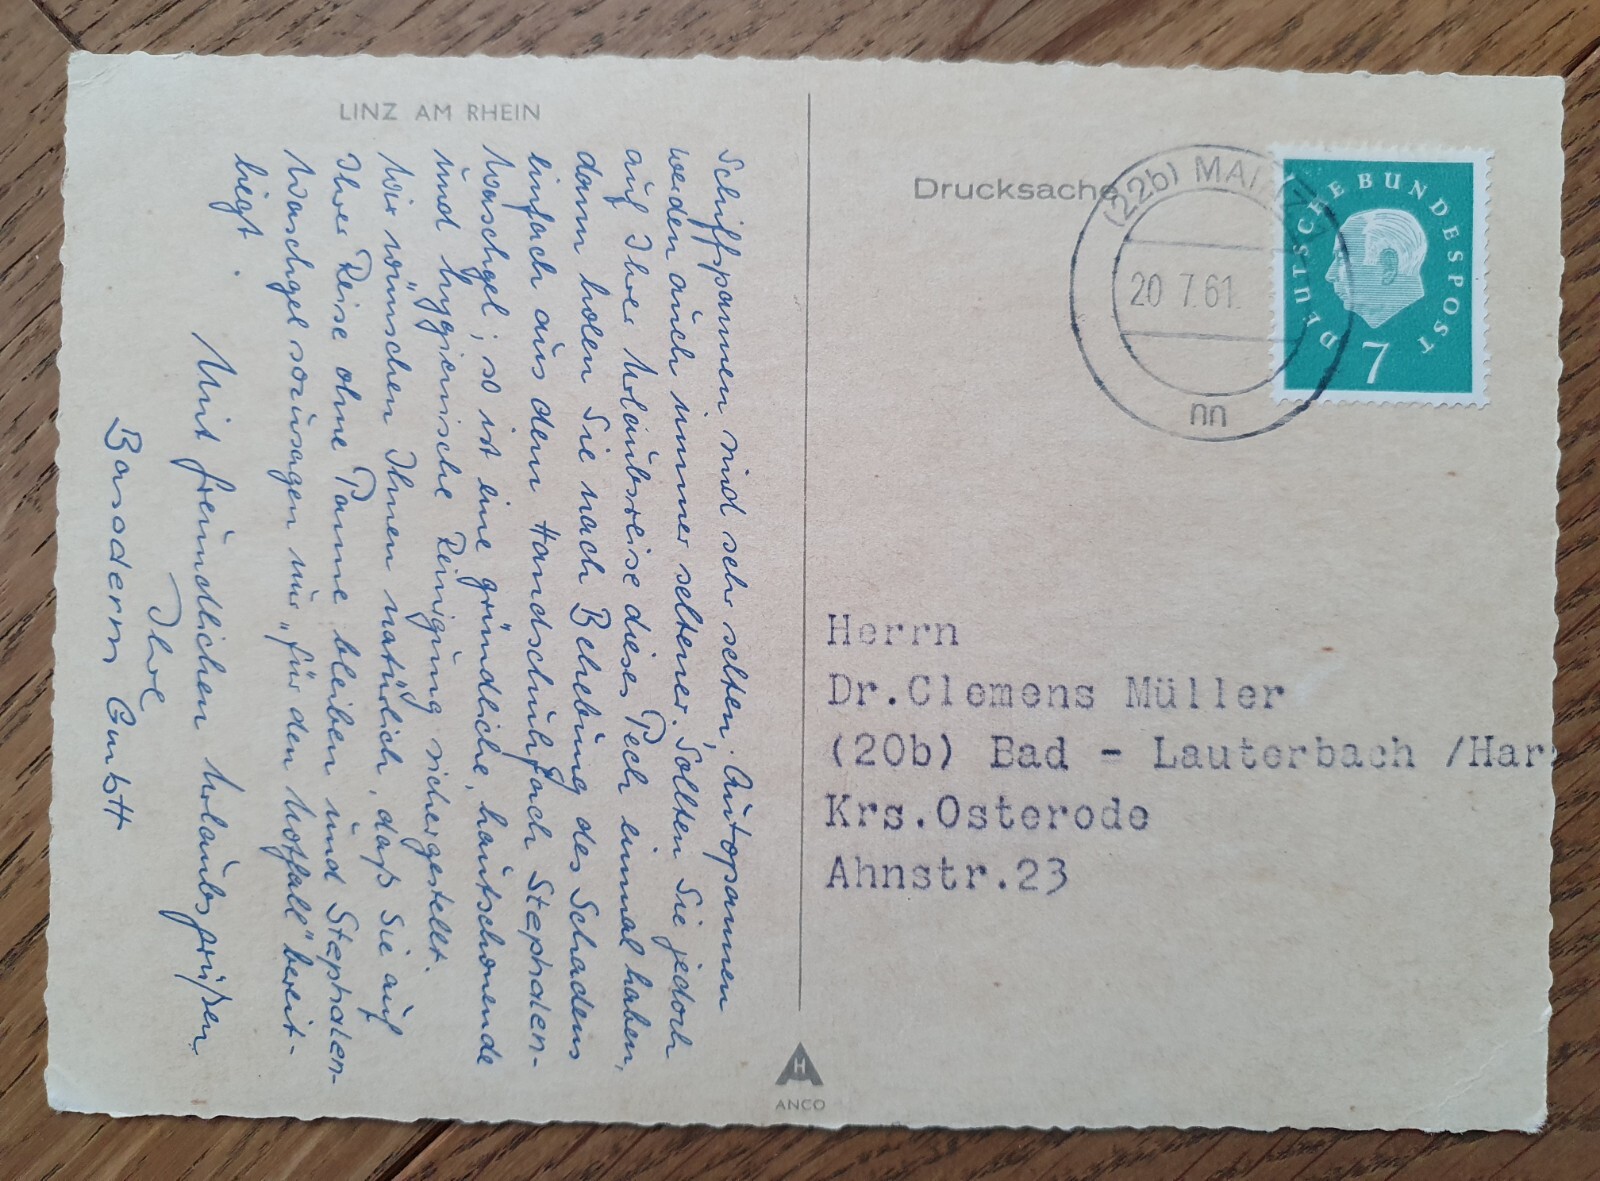 LINZ AM RHEIN
Schiffspannen sind sehr selten, Autopannen
werden auch immer seltener. Sollten Sie jedoch
auf Ihrer Urlaubsreise dieses Pech einmal haben,
dann holen Sie nach Behebung des Schadens
einfach aus dem Handschuhfach Stephalen-
Waschgel; so ist eine gründliche, hautschonende
und hygienische Reinigung sichergestellt.
Wir wünschen Ihnen natürlich, daß Sie auf
Ihrer Reise ohne Panne bleiben und Stephalen-
Waschgel sozusagen nur "für den Notfall" bereit-
liegt.
Mit freundlichen Urlaubsgrüßen
Ihre
Basoderm GmbH
Drucksache
(22b) MAINZ
20.7.61.
nn
DEUTSCHE BUNDESPOST
7
Herrn
Dr.Clemens Müller
(20b) Bad - Lauterbach /Harz
Krs.Osterode
Ahnstr.23
H
ANCO